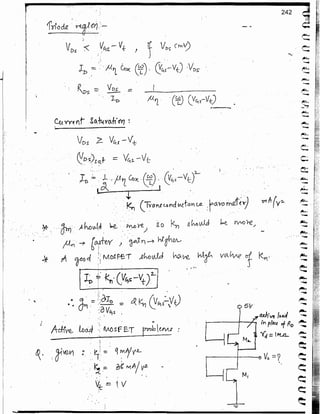 242
Triode region :-
V_DS < V_GS - V_t , & V_DS (mV)
I_D = μ_n Cox (W/L) · (V_GS - V_t) · V_DS
R_DS = V_DS / I_D = 1 / μ_n (W/L) (V_GS - V_t)
Current Saturation :
V_DS ≥ V_GS - V_t
(V_DS)sat = V_GS - V_t
I_D = 1/2 · μ_n Cox (W/L) · (V_GS - V_t)²
K_n (Transconductance parameter) mA/V²
* g_m should be more, so K_n should be more,
μ_n → faster , gain → higher
* A good MOSFET should have high value of K_n.
I_D = K_n · (V_GS - V_t)²
∴ g_m = ∂I_D / ∂V_GS = 2 K_n (V_GS - V_t)
Active load MOSFET problems :
Q. given : K_1 = 9 mA/V²
K_2 = 36 mA/V²
V_t = 1 V
5V
active load
in place of R_D
M_2
V_o = ?
M_1